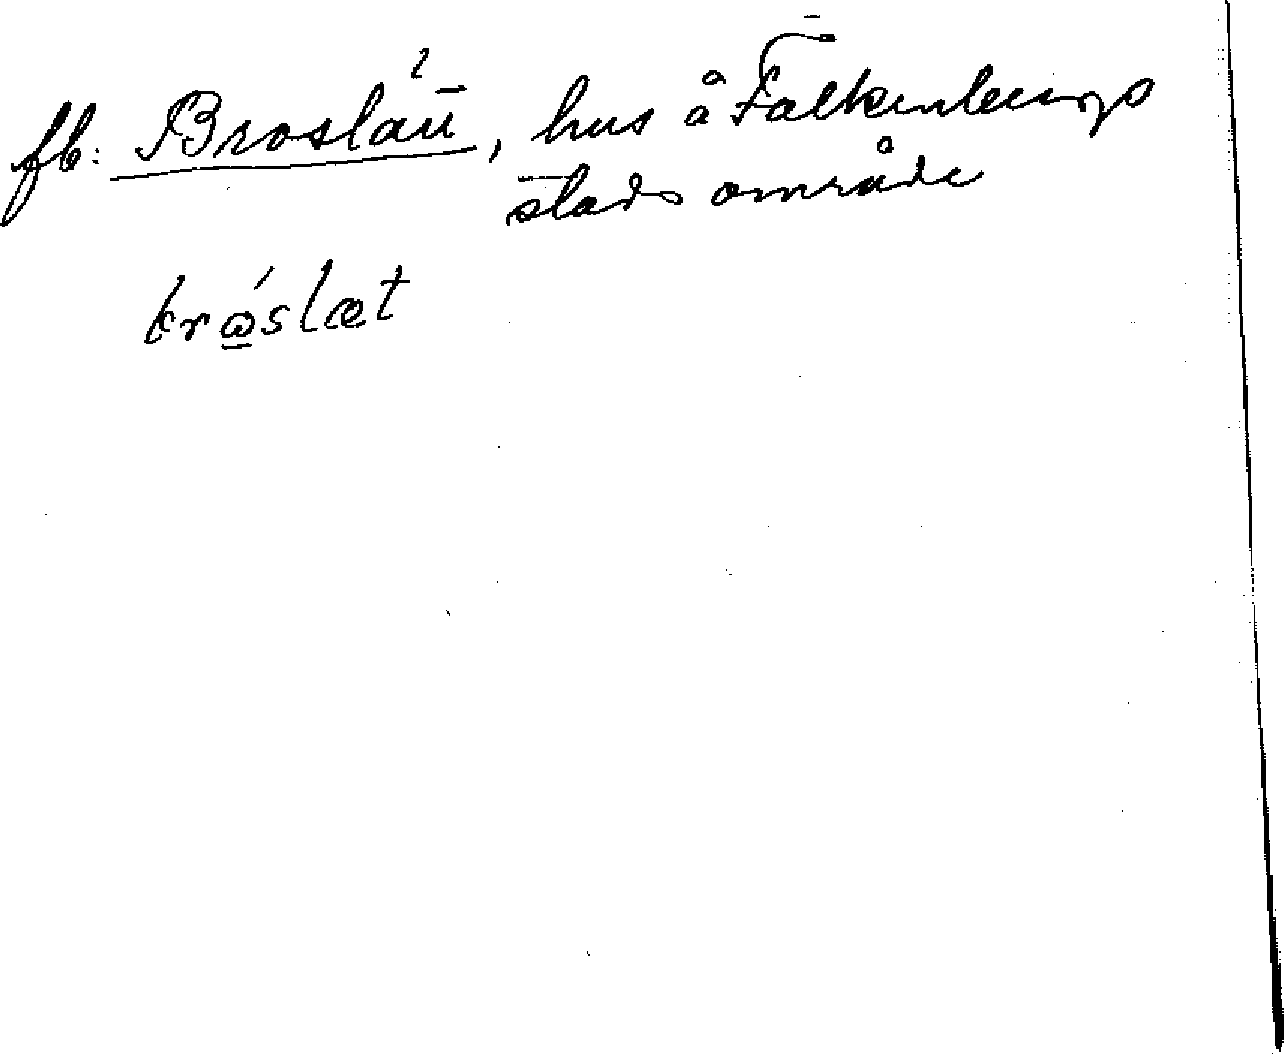 fb: Broslätt, hus å Falkenbergs
stads område